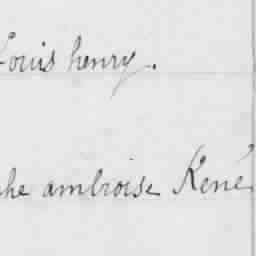 Louis henry.
he ambroise René